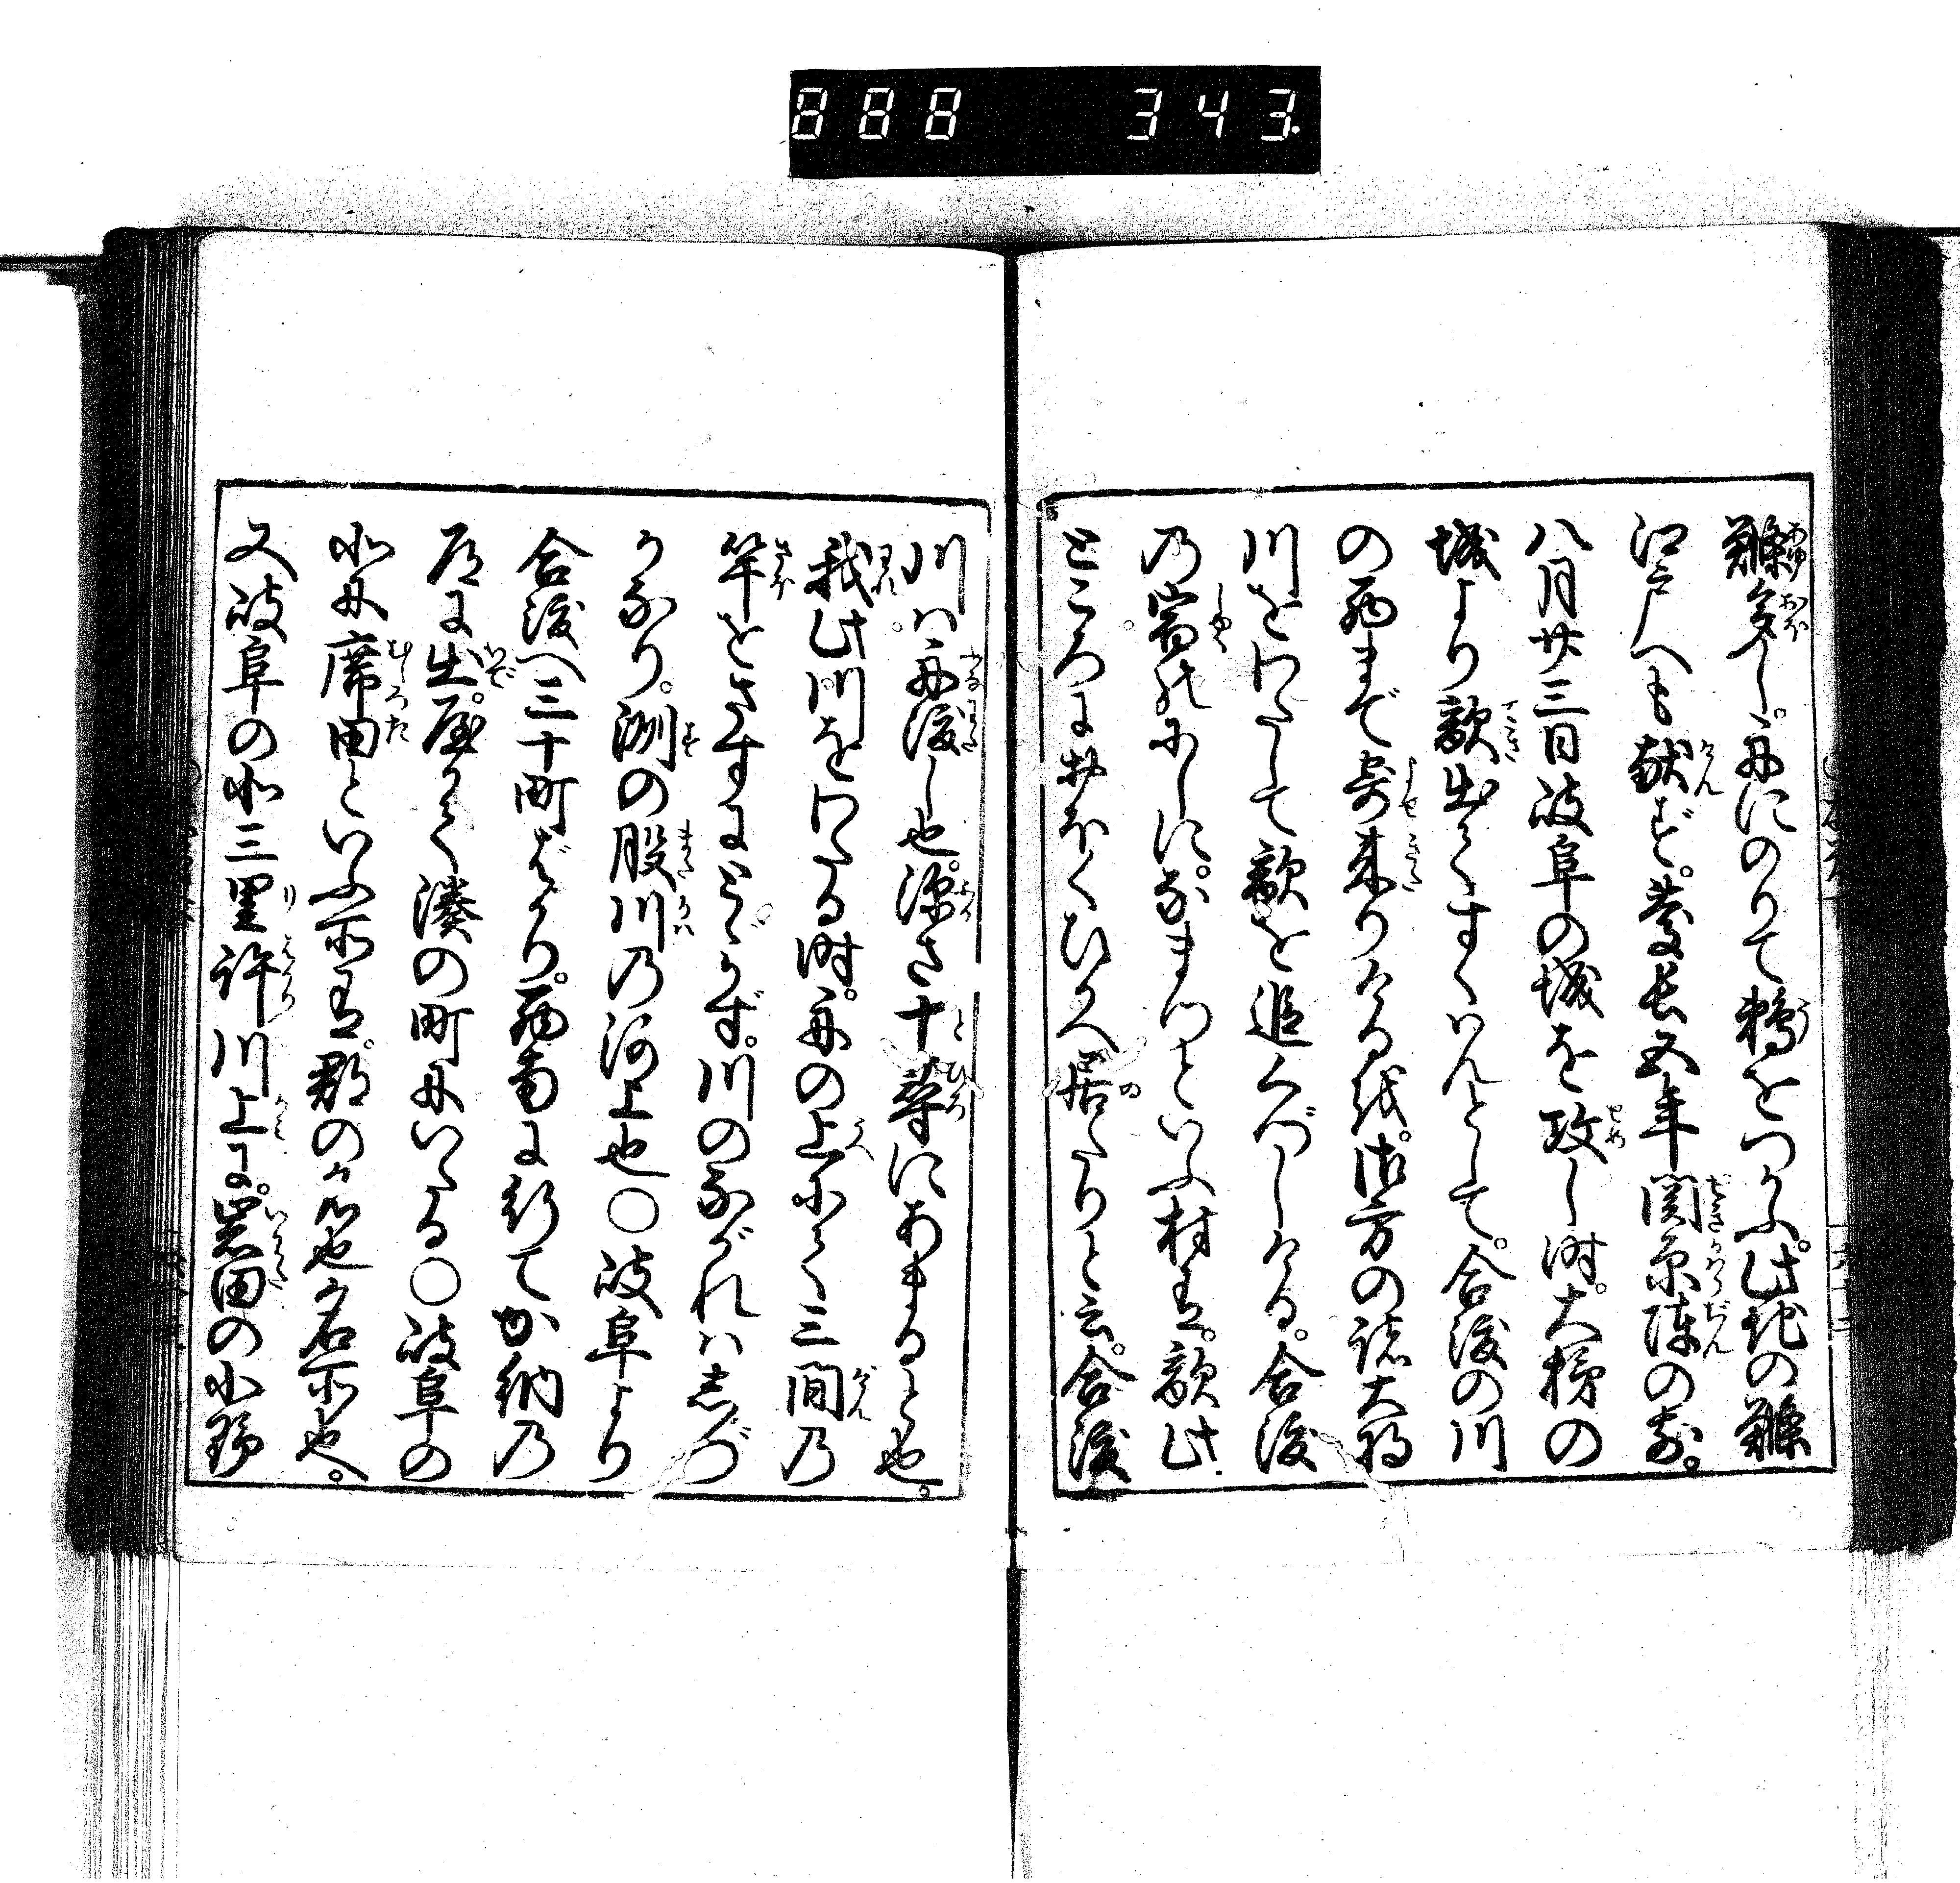 888 343
鰷多し。舟にのりて鵜をつかふ。此地の鰷
江戸へも献ず。慶長五年関原陣の前。
八月廿三日岐阜の城を攻し時。大柿の
城より敵出てすくはんとして。合渡の川
の西まで寄来りけるを。御方の諸大将
川をわたして敵を追くづしける。合渡
乃宿のにしに。なまづといふ村有。敵此
ところにおほくひかへ居たりと云。合渡
川は舟渡し也。深さ十尋にあまると也。
我此川をわたる時。舟の上にて三間乃
竿をさすにとゞかず。川のながれはしづ
かなり。洲の股川乃河上也〇岐阜より
合渡へ三十町ばかり。西南に行てか納乃
尽に出。歴て湊の町にいたる〇岐阜の
北に席田といふ所有。郡の名也名所也。
又岐阜の北三里許川上に。岩田の小野